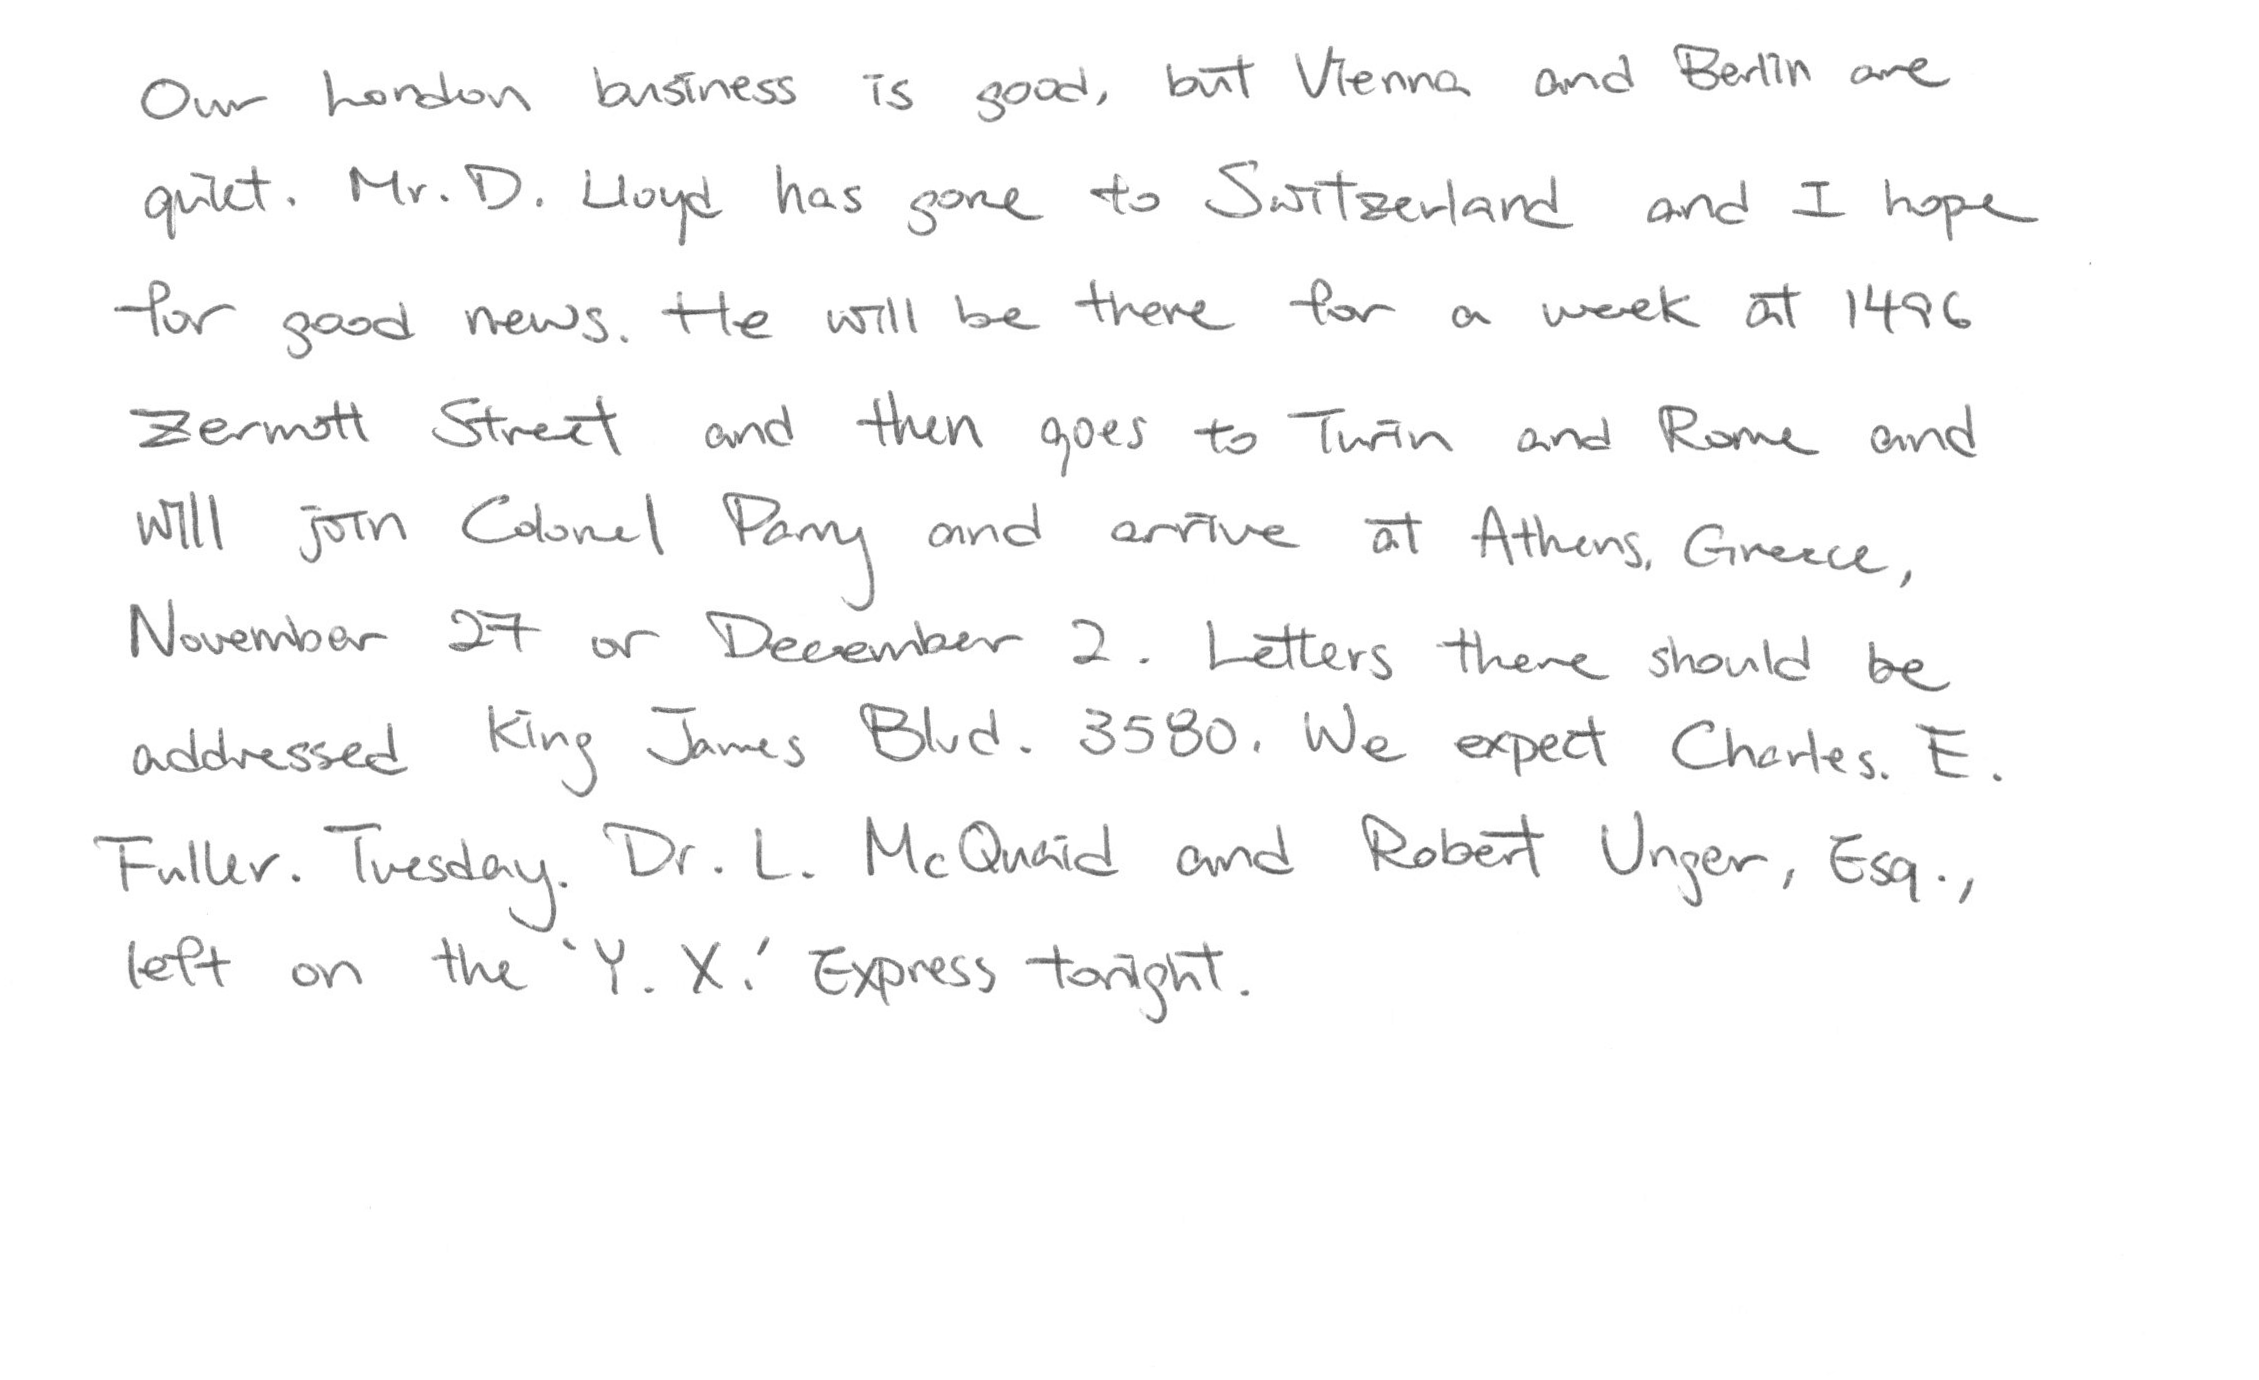 Our London business is good, but Vienna and Berlin are
quiet. Mr. D. Lloyd has gone to Switzerland and I hope
for good news. He will be there for a week at 1496
Zermott Street and then goes to Turin and Rome and
will join Colonel Parry and arrive at Athens, Greece,
November 27 or December 2. Letters there should be
addressed King James Blvd. 3580. We expect Charles. E.
Fuller. Tuesday. Dr. L. McQuaid and Robert Unger, Esq.,
left on the 'Y. X.' Express tonight.